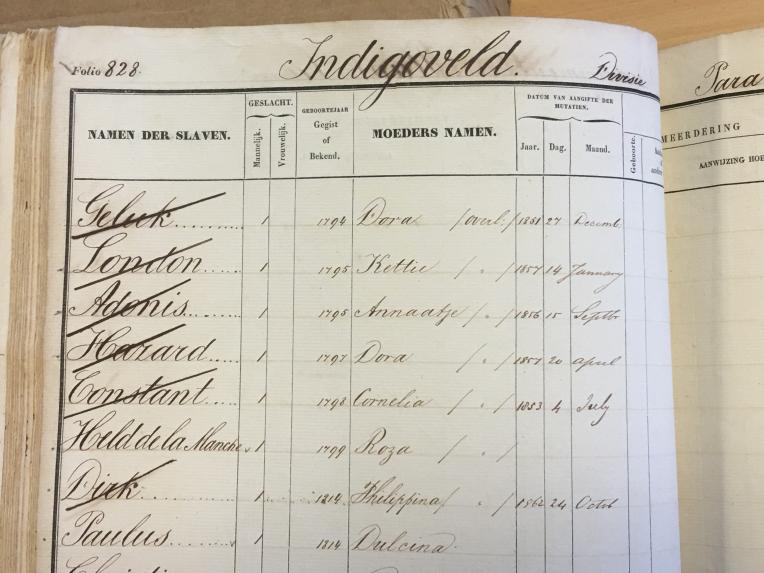 Folio 828. Indigoveld. Divisie Para
NAMEN DER SLAVEN. GESLACHT. Mannelijk. Vrouwelijk. GEBOORTEJAAR Gegist of Bekend. MOEDERS NAMEN. DATUM VAN AANGIFTE DER MUTATIEN. Jaar. Dag. Maand. Geboorte. MEERDERING AANWIJZING HOE
Geluk 1 1794 Dora /overl./ 1851 27 Decemb.
London 1 1795 Kettie / " / 1857 14 January
Adonis 1 1795 Annaatje / " / 1856 15 Septbr
Hazard 1 1797 Dora / " / 1857 20 april
Constant 1 1798 Cornelia / " / 1853 4 July
Held de la Manche 1 1799 Roza / " /
Dirk 1 1814 Philippina / " / 1862 24 Octob
Paulus 1 1814 Dulcina.